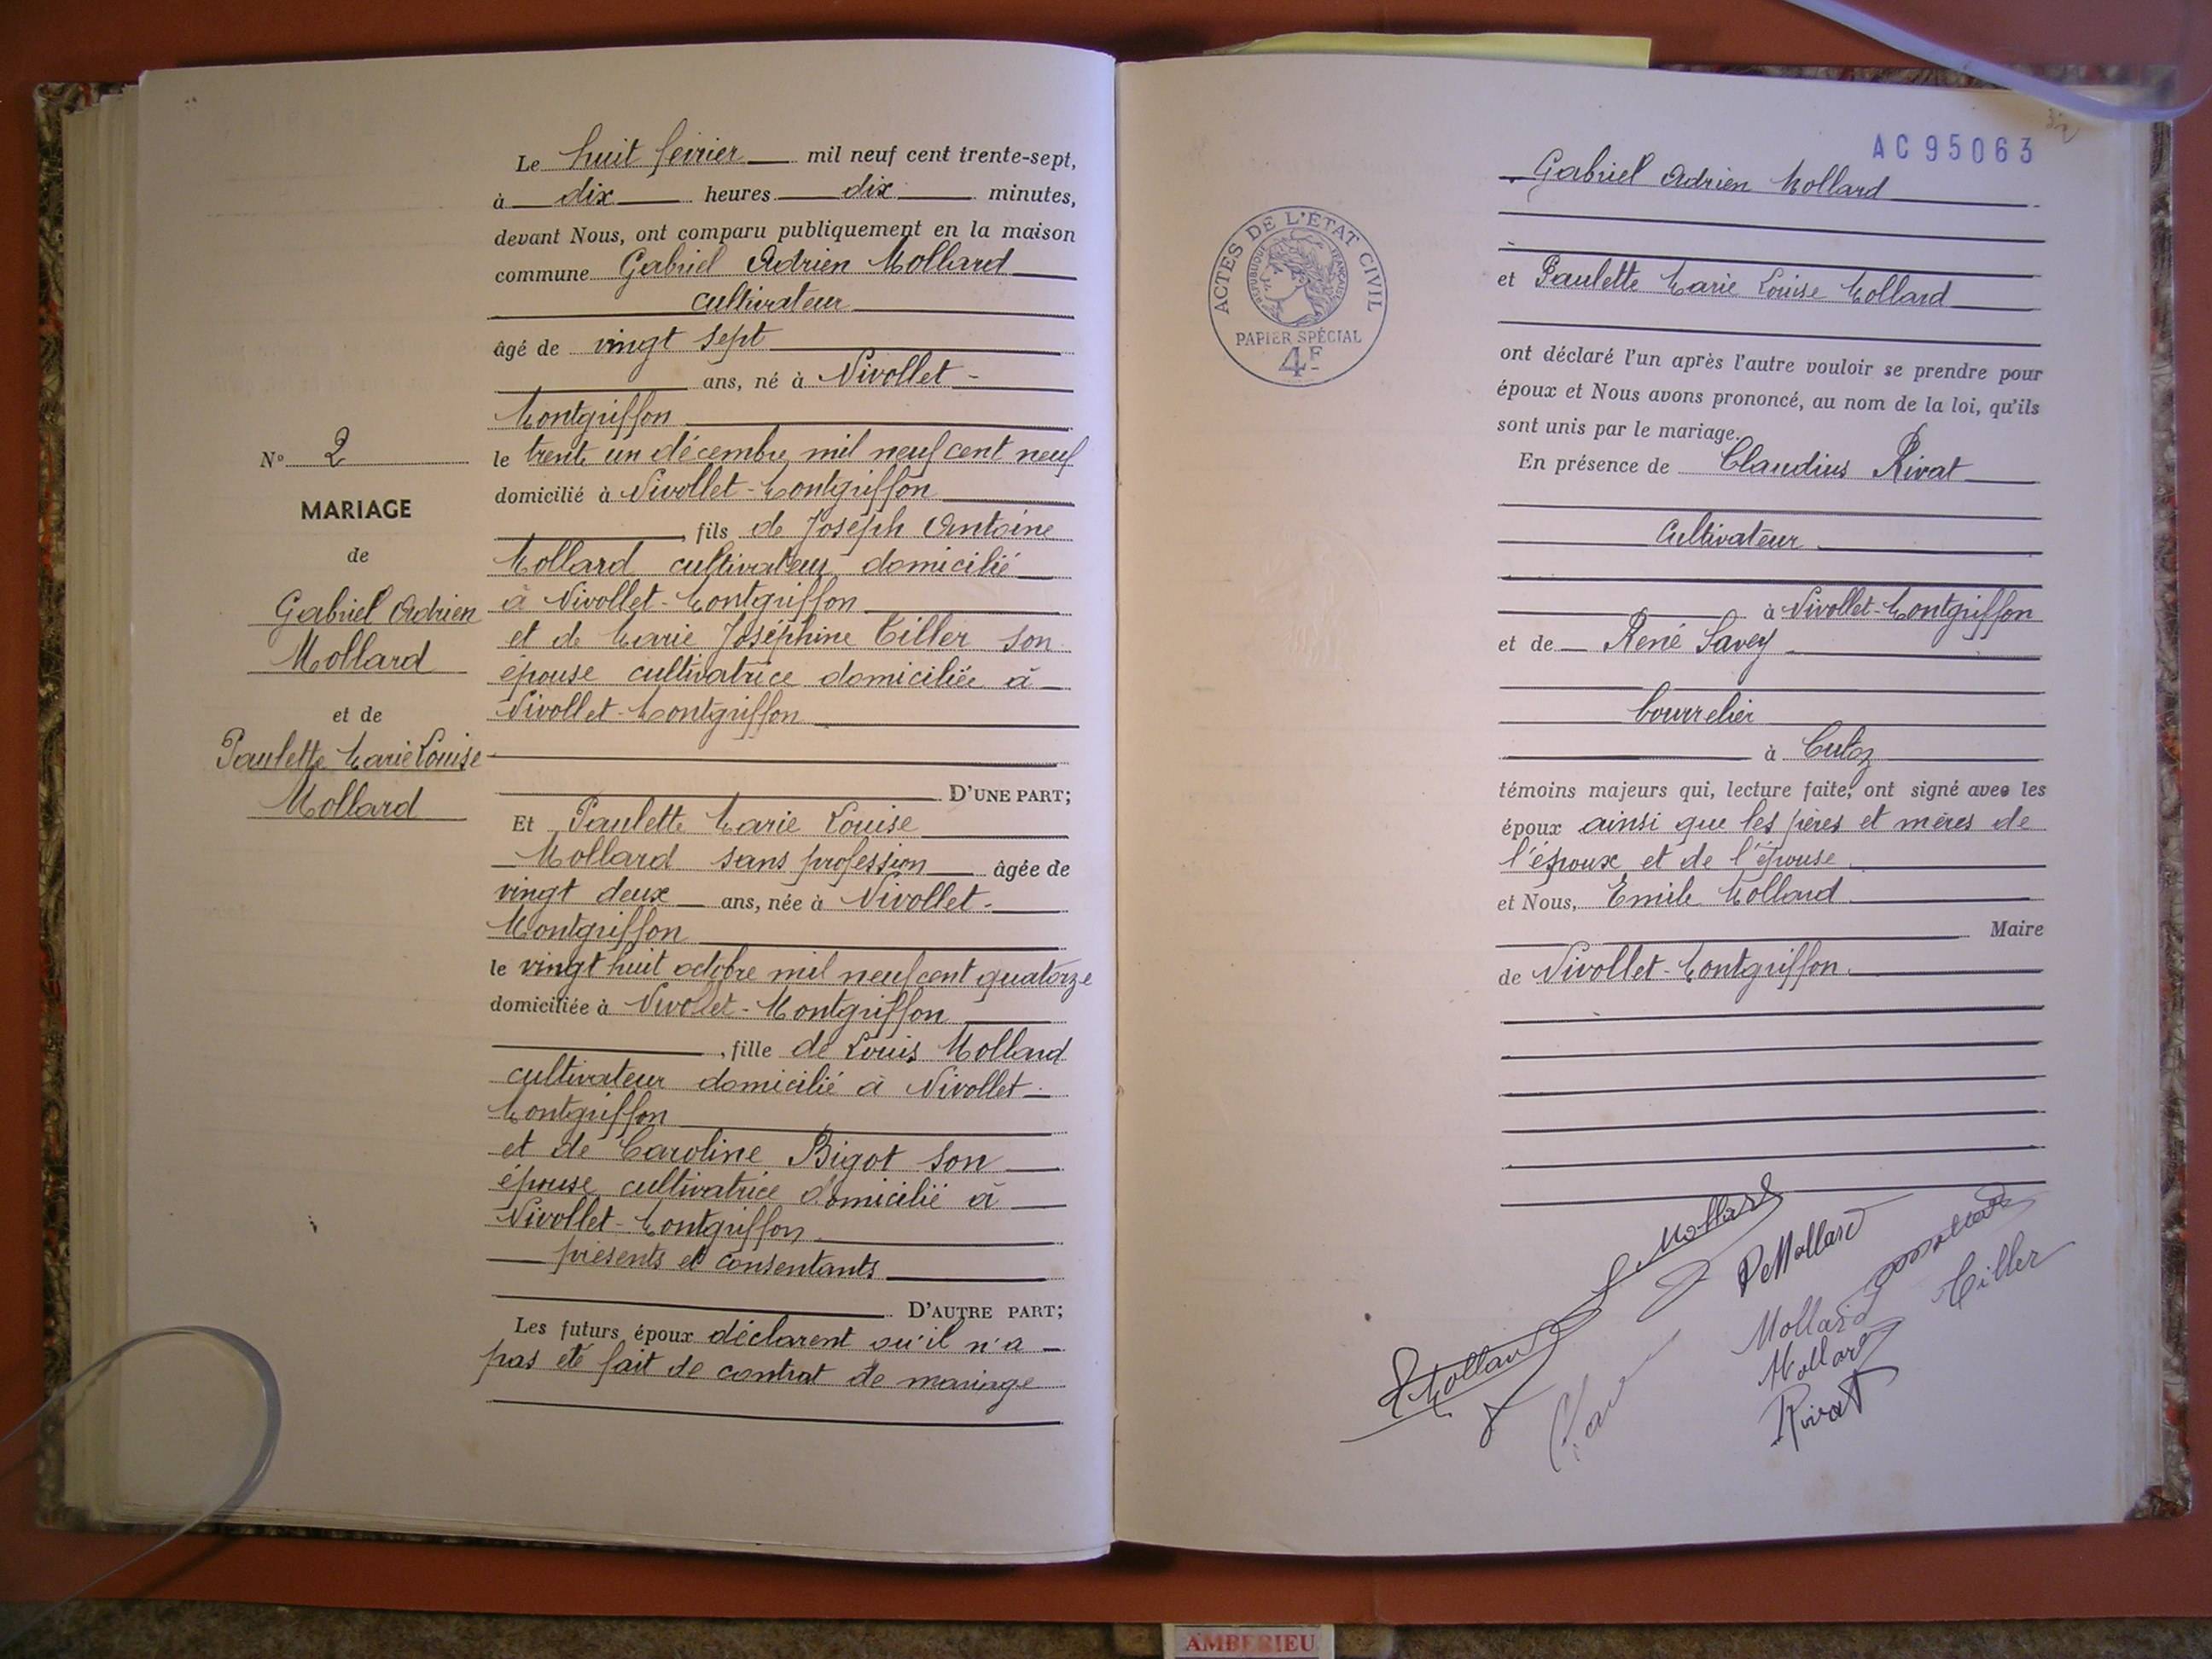 Le huit février mil neuf cent trente-sept,
à dix heures dix minutes,
devant Nous, ont comparu publiquement en la maison
commune Gabriel Adrien Mollard
cultivateur
âgé de vingt sept
ans, né à Nivollet-
Montgriffon
le trente un décembre mil neuf cent neuf
domicilié à Nivollet-Montgriffon
, fils de Joseph Antoine
Mollard cultivateur domicilié
à Nivollet-Montgriffon
et de Marie Joséphine Tiller son
épouse cultivatrice domiciliée à
Nivollet-Montgriffon
D'UNE PART;
Et Paulette Marie Louise
Mollard sans profession âgée de
vingt deux ans, née à Nivollet-
Montgriffon
le vingt huit octobre mil neuf cent quatorze
domiciliée à Nivollet-Montgriffon
, fille de Louis Mollard
cultivateur domicilié à Nivollet-
Montgriffon
et de Caroline Bigot son
épouse cultivatrice domicilié à
Nivollet-Montgriffon
présents et consentants
D'AUTRE PART;
Les futurs époux déclarent qu'il n'a
pas été fait de contrat de mariage
N° 2
MARIAGE
de
Gabriel Adrien
Mollard
et de
Paulette Marie Louise
Mollard
AC 95063
ACTES DE L'ÉTAT CIVIL
RÉPUBLIQUE FRANÇAISE
PAPIER SPÉCIAL
4F
Gabriel Adrien Mollard
et Paulette Marie Louise Mollard
ont déclaré l'un après l'autre vouloir se prendre pour
époux et Nous avons prononcé, au nom de la loi, qu'ils
sont unis par le mariage.
En présence de Claudius Rivat
Cultivateur
à Nivollet-Montgriffon
et de René Savey
bourrelier
à Culoz
témoins majeurs qui, lecture faite, ont signé avec les
époux ainsi que les pères et mères de
l'époux et de l'épouse
et Nous, Emile Mollard
Maire
de Nivollet-Montgriffon
Mollard
P Mollard
Mollard
Tiller
Mollard
Mollard
Mollard
Rivat
AMBERIEU